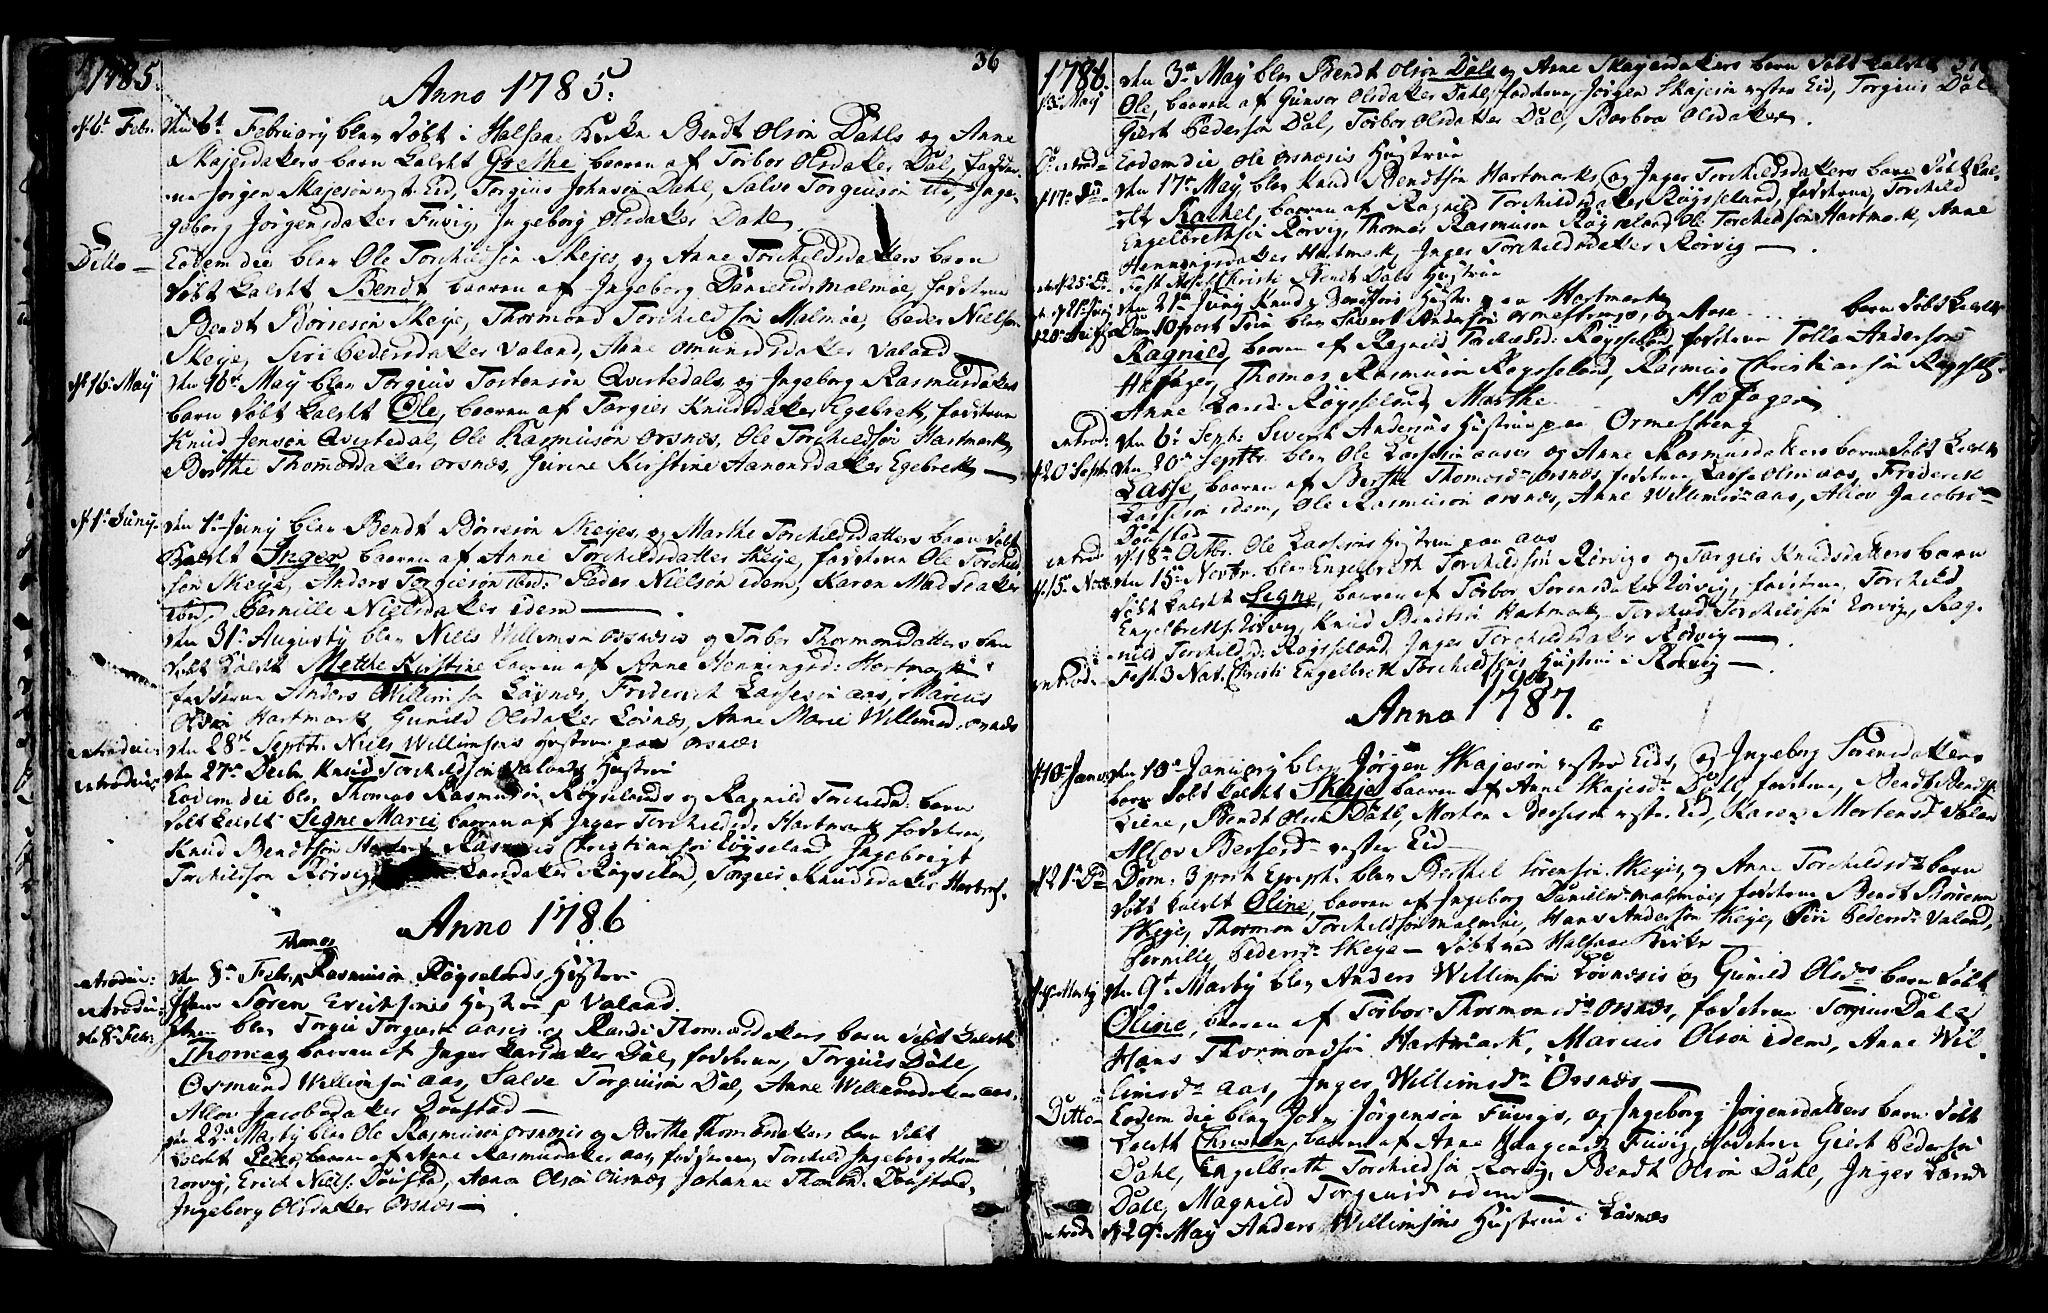 1785.
36
Anno 1785.
d 6t Febr. den 6t February blev døbt i Halsaae Kirke Bendt Olsøn Dahls og Anne
Skajesdatters barn kaldet Grethe baaren af Torbor Olsdatter Dal, fadder-
ne Jørgen Skajesøn vest. Eid, Torgius Johnsøn Dahl, Salve Torgiusøn ibd, Inge-
geborg Jørgensdatter Fuvig, Ingeborg Olsdatter Dahl.
Ditto — Eodem die blev Ole Torchildsøn Skejes, og Anne Torchildsdatters barn
døbt kaldet Bendt baaren af Ingeborg Danielsd. Malmøe, fadderne
Bendt Børresøn Skeje, Thormond Torchildsøn Malmøe, Peder Nielsøn
Skeje, Siri Pedersdatter Valand, Anne Omundsdatter Valand
d 16. May den 16de May blev Torgius Tostensøn Qvistedals, og Ingeborg Rasmusdatters
barn døbt kaldet Ole, baaren af Torgier Knudsdatter Egebrek, fadderne
Knud Jensøn Qvistedal, Ole Rasmusøn Orsnæs, Ole Torchildsøn Hartmark,
Berthe Thomædatter Orsnæs, Kirstine Aanonsdatter Egebrek —
d 1. Juny. den 1. Juny blev Bendt Børresøn Skejes, og Marthe Torchildsdatters barn døbt
kaldet Inger baaren af Anne Torchildsdatter Skeje, fadderne Ole Torchild-
søn Skeje, Anders Torgiesøn ibd. Peder Nielsøn idem, Karen Madsdatter
ibd, Pernille Nielsdatter idem —
den 31t Augusty blev Niels Willumsøn Orsnæsis og Torbor Thormondatters barn
døbt kaldet Mette Kirstine baaren af Anne Henningsd: Hartmark
fadderne Anders Willumsøn Løvnæs, Friderich Lassesøn Aas, Marius
Olsøn Hartmark, Gunild Olsdatter Løvnæs, Anne Marie Willumsd. Orsnæs
introduc: den 28de Septbr. Niels Willumsøns Hustrue paa Orsnæs
introduc: den 27de Decbr. Knud Torchildsøn Valands Hustrue
Eodem die blev Thomas Rasmusøn Røyselands og Ragnild Torchildsd. barn
døbt kaldet Segne Marie baaren af Inger Torchildsd. Hartmark fadderne,
Knud Bendtsøn Hartmark Rasmus Christiansøn Røyseland Ingebrigt
Torchildsøn Rørvig, Larsdatter Røyseland, Torgier Knudsdatter Hartmark.
Anno 1786
Thomas
introduc: den 8de Febr. Rasmusøn Røyselands Hustrue
introduc: Item Søren Erichsøns Hustrue p. Valand.
den 8. Febr. Item blev Torgie Torgiusøn Aasis og Randi Thomædatters barn døbt kaldet
Thomas baaren af Inger Larsdatter Dal, fadderne, Torgius Dale,
Osmund Willumsøn Aas, Salve Torgiusøn Dal, Anne Willumsdatter Aas,
Allov Jacobsdatter Dønstad —
den 22de Marty blev Ole Rasmusøn Orsnæsis og Berthe Thomædatters barn døbt
kaldet Peder, baaren af Anne Rasmusdatter Aas, fadderne, Torchild Ingebrigtsøn
Rørvig, Erich Niels. Dønstad, Aanon Olsøn Orsnæs, Johanne Thomæd. Dønstad,
Ingeborg Olsdatter Orsnæs —
1786
d 3. May den 3de May blev Bendt Olsøn Dals og Anne Skajesdatters barn døbt kaldet
Ole, baaren af Gunvor Olsdatter Dahl, fadderne, Jørgen Skajesøn vester Eid, Torgius Dal
Giert Pedersøn Dal, Torbor Olsdatter Dal, Barbra Olsdatter.
introd. Eodem die Ole Orsnæsis Hustrue
d 17de Do den 17de May blev Knud Bendtsøn Hartmarks og Inger Torchildsdatters barn døbt kal-
det Rachel, baaren af Ragnild Torchildsdatter Røysseland, fadderne, Torchild
Engelbrethsøn Rørvig, Thomas Rasmusøn Røyseland, Ole Torchildsøn Hartmark, Anne
Henningsdatter Hartmark, Inger Torchildsdatter Rørvig —
Fest. Christi Bendt Dals Hustrue
den 21de Juny Knud Bendtsøns Hustr. paa Hartmark
Dom 10 post Trin blev Sivert Andersøn Ormestrengs, og Anne barn døbt kaldet
Ragnild, baaren af Ragnild Torchildsd. Røysseland, fadderne Tolle Andersøn
Høfager, Thomas Rasmusøn Røysseland, Rasmus Christiansøn Røyssel.
Anne Larsd. Røysseland, Marthe Høfager
introd: den 6t Sept. Sivert Andersøns Hustrue paa Ormestreng
d 20 Septr. den 20de Septbr. blev Ole Lassesøn Aases og Anne Rasmusdatters barn døbt kaldet
Lasse, baaren af Berthe Thomæd. Orsnæs, fadderne Lasse Olsøn Aas, Friderich
Lassesøn idem, Ole Rasmusøn Orsnæs, Anne Willumsd. Aas, Allov Jacobs-
Dønstad
introd: d. 18de Octbr. Ole Lassesøns Hustrue paa Aas
d. 15. Nov. den 15de Novbr. blev Engelbreth Torchildsøn Rørvigs og Torgier Knudsdatters barn
døbt kaldet Segne, baaren af Torbor Sørensdatter Rørvig, fadderne, Torchild
Engelbreths. Rørvig, Knud Bendtsøn Hartmark, Torchild Torchildsøn Rørvig, Rag-
nild Torchildsd: Røysseland, Inger Torchildsdatter Rørvig —
introd: Fest. 3 Nat. Christi Engelbreth Torchildsøns Hustrue i Rørvig —
Anno 1787.
d 10. Januar den 10de January blev Jørgen Skajesøn vester Eids, og Ingeborg Sørensdatters
barn døbt kaldet Skaje baaren af Anne Skajesdr. Dahl, fadderne, Bendt Bendts.
Liene, Bendt Olsøn Dahl, Morten Børgesøn vester Eid, Karen Mortensd. Valand
Allov vester Eid
d 21. Do Dom: 3 post Epiph. blev Berthel Sørensøn Skejes, og Anne Torchildsdrs barn
døbt kaldet Oline, baaren af Ingeborg Danielsd. Malmøe, fadderne Bendt Børresøn
Skeje, Thormon Torchildsøn Malmøe, Hans Andersøn Skeje, Siri Pedersdr. Valand,
Pernille Pedersdr. Skeje — døbt ved Halsaae Kirke
den 9t Marty blev Anders Willumsøn Løvnæsis og Gunild Olsdrs barn døbt
Oline, baaren af Torbor Thormonsdr. Orsnæs, fadderne Torgius Dahl,
Hans Thormondsøn Hartmark, Marius Olsøn idem, Anne Wil-
lumsdr. Aas, Inger Willumsdr. Orsnæs —
Ditto Eodem die blev John Jørgensøn Fuvigs, og Ingeborg Jørgensdatters barn døbt
kaldet Christen, baaren af Anne Haagensd. Fuvig, fadderne Giert Pedersøn
Dahl, Engelbreth Torchildsøn Rørvig, Bendt Olsøn Dahl, Inger Larsdr.
Dahl, Magnild Torgiusdr. idem —
introd. d 29. May Anders Willumsøns Hustrue i Løvnæs